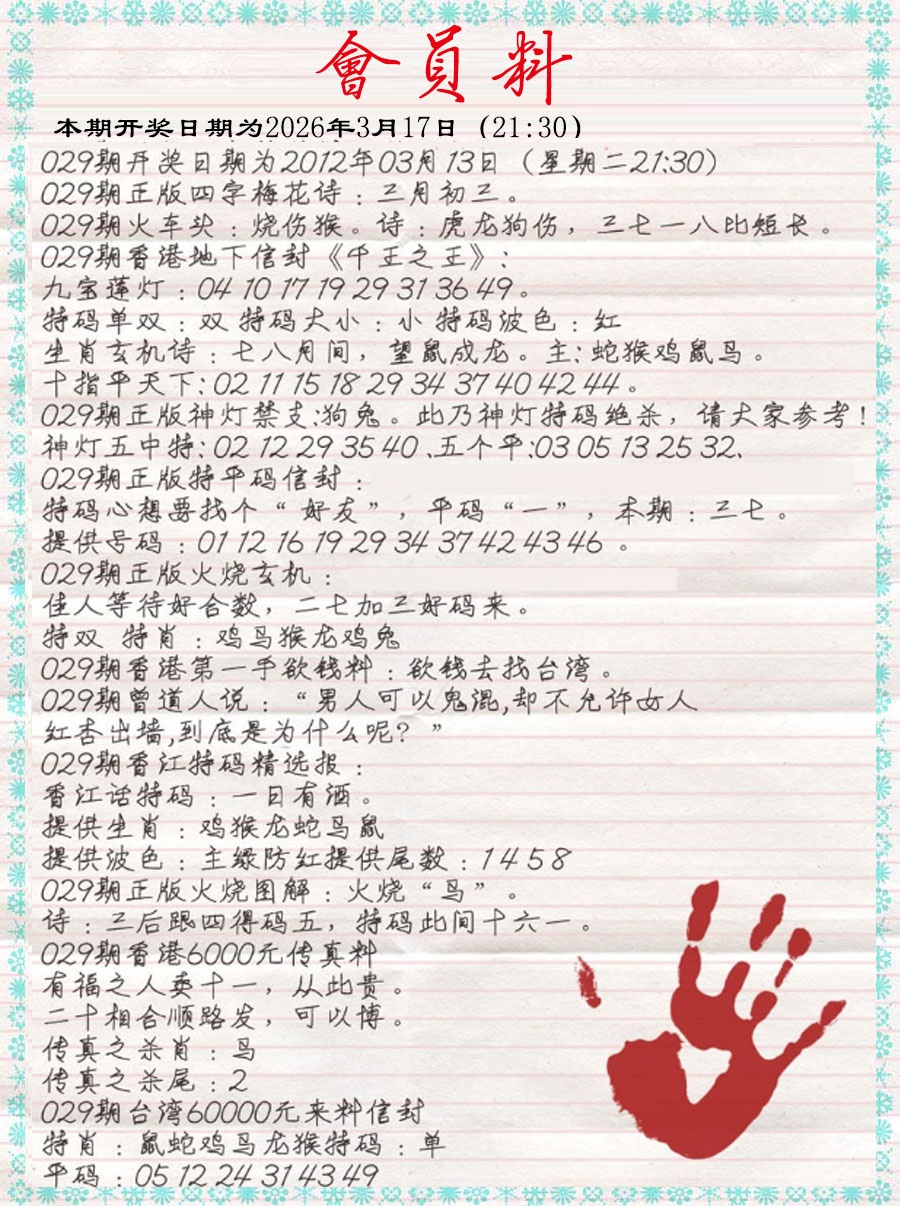 會員料
本期开奖日期为2026年3月17日(21:30)
029期开奖日期为2012年03月13日(星期二21:30)
029期正版四字梅花诗:三月初三。
029期火车头:烧伤猴。诗:虎龙狗伤,三七一八比短长。
029期香港地下信封《千王之王》:
九宝莲灯:04 10 17 19 29 31 36 49。
特码单双:双 特码大小:小 特码波色:红
生肖玄机诗:七八月间,望鼠成龙。主:蛇猴鸡鼠马。
十指平天下:02 11 15 18 29 34 37 40 42 44。
029期正版神灯禁支:狗兔。此乃神灯特码绝杀,请大家参考!
神灯五中特:02 12 29 35 40、五个平:03 05 13 25 32、
029期正版特平码信封:
特码心想要找个“好友”,平码“一”,本期:三七。
提供号码:01 12 16 19 29 34 37 42 43 46。
029期正版火烧玄机:
佳人等待好合数,二七加三好码来。
特双 特肖:鸡马猴龙鸡兔
029期香港第一手欲钱料:欲钱去找台湾。
029期曾道人说:“男人可以鬼混,却不允许女人
红杏出墙,到底是为什么呢?”
029期香江特码精选报:
香江话特码:一日有酒。
提供生肖:鸡猴龙蛇马鼠
提供波色:主绿防红提供尾数:1 4 5 8
029期正版火烧图解:火烧“马”。
诗:三后跟四得码五,特码此间十六一。
029期香港6000元传真料
有福之人卖十一,从此贵。
二十相合顺路发,可以博。
传真之杀肖:马
传真之杀尾:2
029期台湾60000元来料信封
特肖:鼠蛇鸡马龙猴特码:单
平码:05 12 24 31 43 49